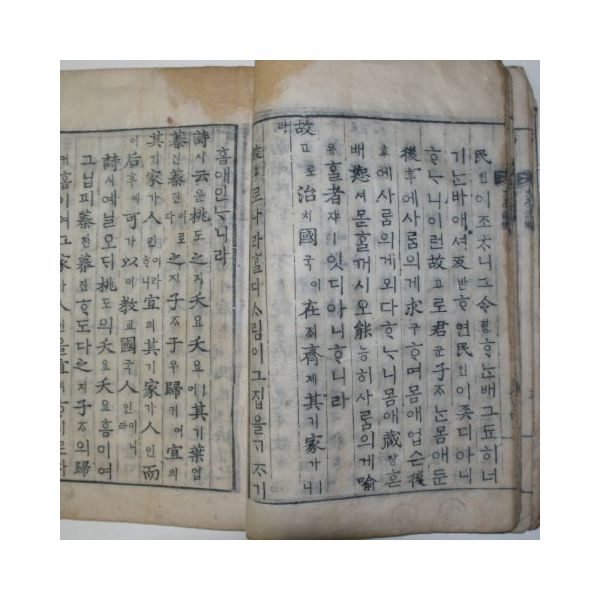 民민이조ᄎᆞ니그令령ᄒᆞᄂᆞᆫ배그됴히너
기ᄂᆞᆫ바애셔反반ᄒᆞ면民민이좃디아니
ᄒᆞᄂᆞ니이런故고로君군子ᄌᆞᄂᆞᆫ몸애둔
後후에사ᄅᆞᆷ의게求구ᄒᆞ며몸애업슨後
후에사ᄅᆞᆷ의게외다ᄒᆞᄂᆞ니몸애藏장ᄒᆞᆫ
배恕셔몯ᄒᆞᆯ꺼시오能능히사ᄅᆞᆷ의게喩
유ᄒᆞᆯ者쟈ㅣ잇디아니ᄒᆞ니라
故고로治치國국이在ᄌᆡ齊졔其기家가ᄒᆞ니
라
故고로나라ᄒᆞᆯ다ᄉᆞ림이그집을
홈애인ᄂᆞ니라
詩시云운桃도之지夭요夭요ㅣ여其기葉엽
蓁진蓁진이로다之지子ᄌᆞ于우歸귀ㅣ여宜의
其기家가人인이라ᄒᆞ니宜의其기家가人인而이
后후에可가以이敎교國국人인이니라
詩시예닐오ᄃᆡ桃도의夭요夭요홈이여
그닙피蓁진蓁진ᄒᆞ도다之지子ᄌᆞ의歸
귀홈이여그家가人인을宜의ᄒᆞ리로다